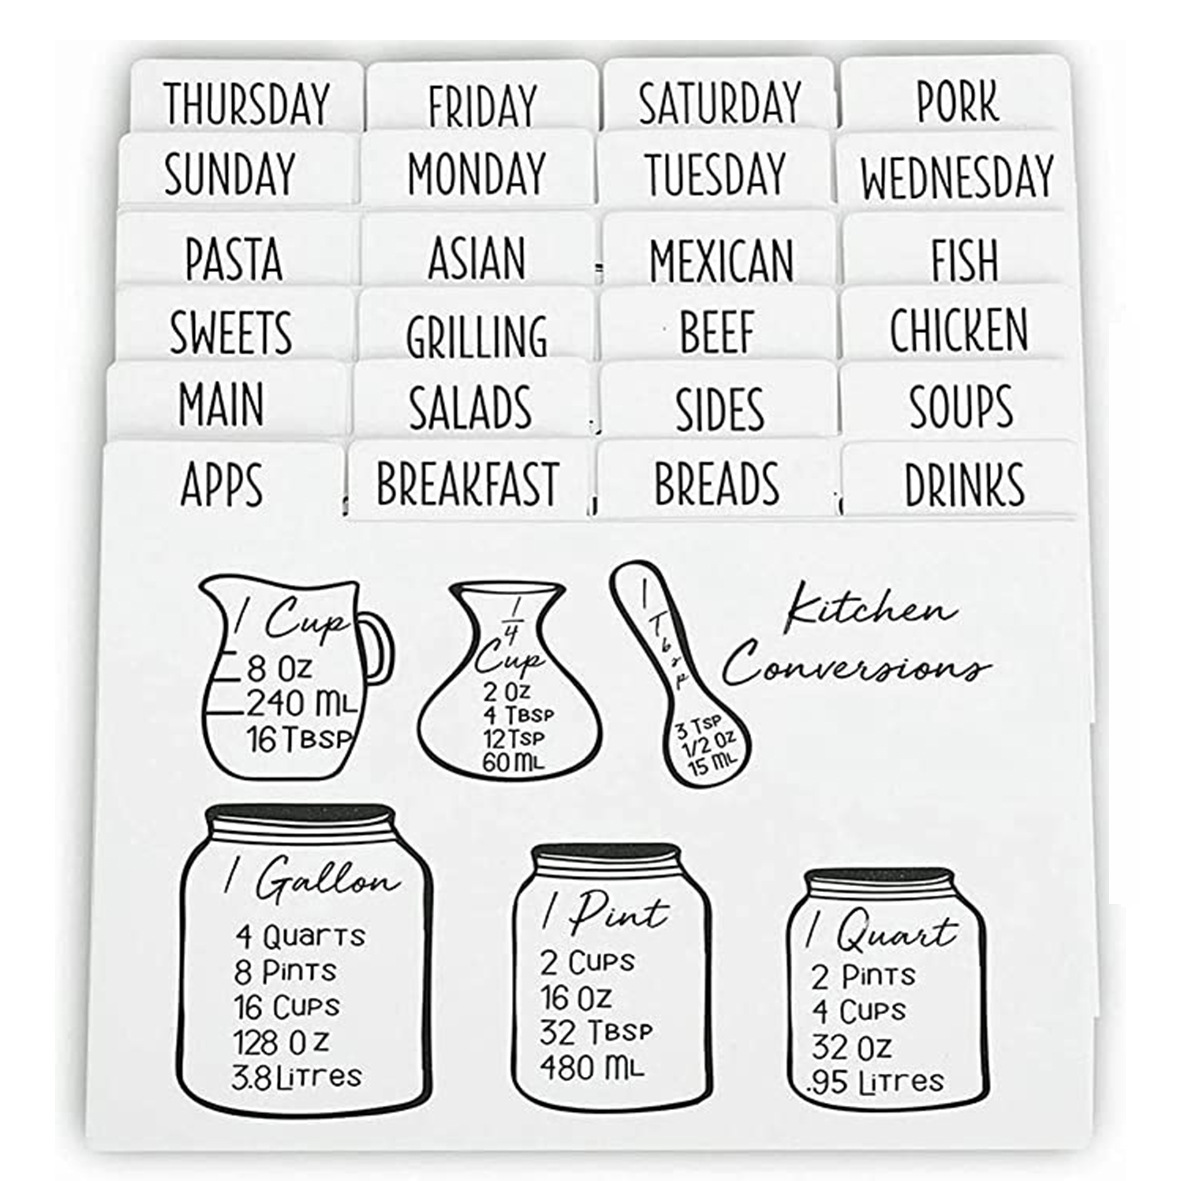 THURSDAY FRIDAY SATURDAY PORK
SUNDAY MONDAY TUESDAY WEDNESDAY
PASTA ASIAN MEXICAN FISH
SWEETS GRILLING BEEF CHICKEN
MAIN SALADS SIDES SOUPS
APPS BREAKFAST BREADS DRINKS
Kitchen
Conversions
1 Cup
8 Oz
240 ML
16 TBSP
1/4
Cup
2 Oz
4 TBSP
12 TSP
60 ML
1 Tbsp
3 TSP
1/2 Oz
15 ML
1 Gallon
4 QUARTS
8 PINTS
16 CUPS
128 OZ
3.8 LITRES
1 Pint
2 CUPS
16 OZ
32 TBSP
480 ML
1 Quart
2 PINTS
4 CUPS
32 OZ
.95 LITRES